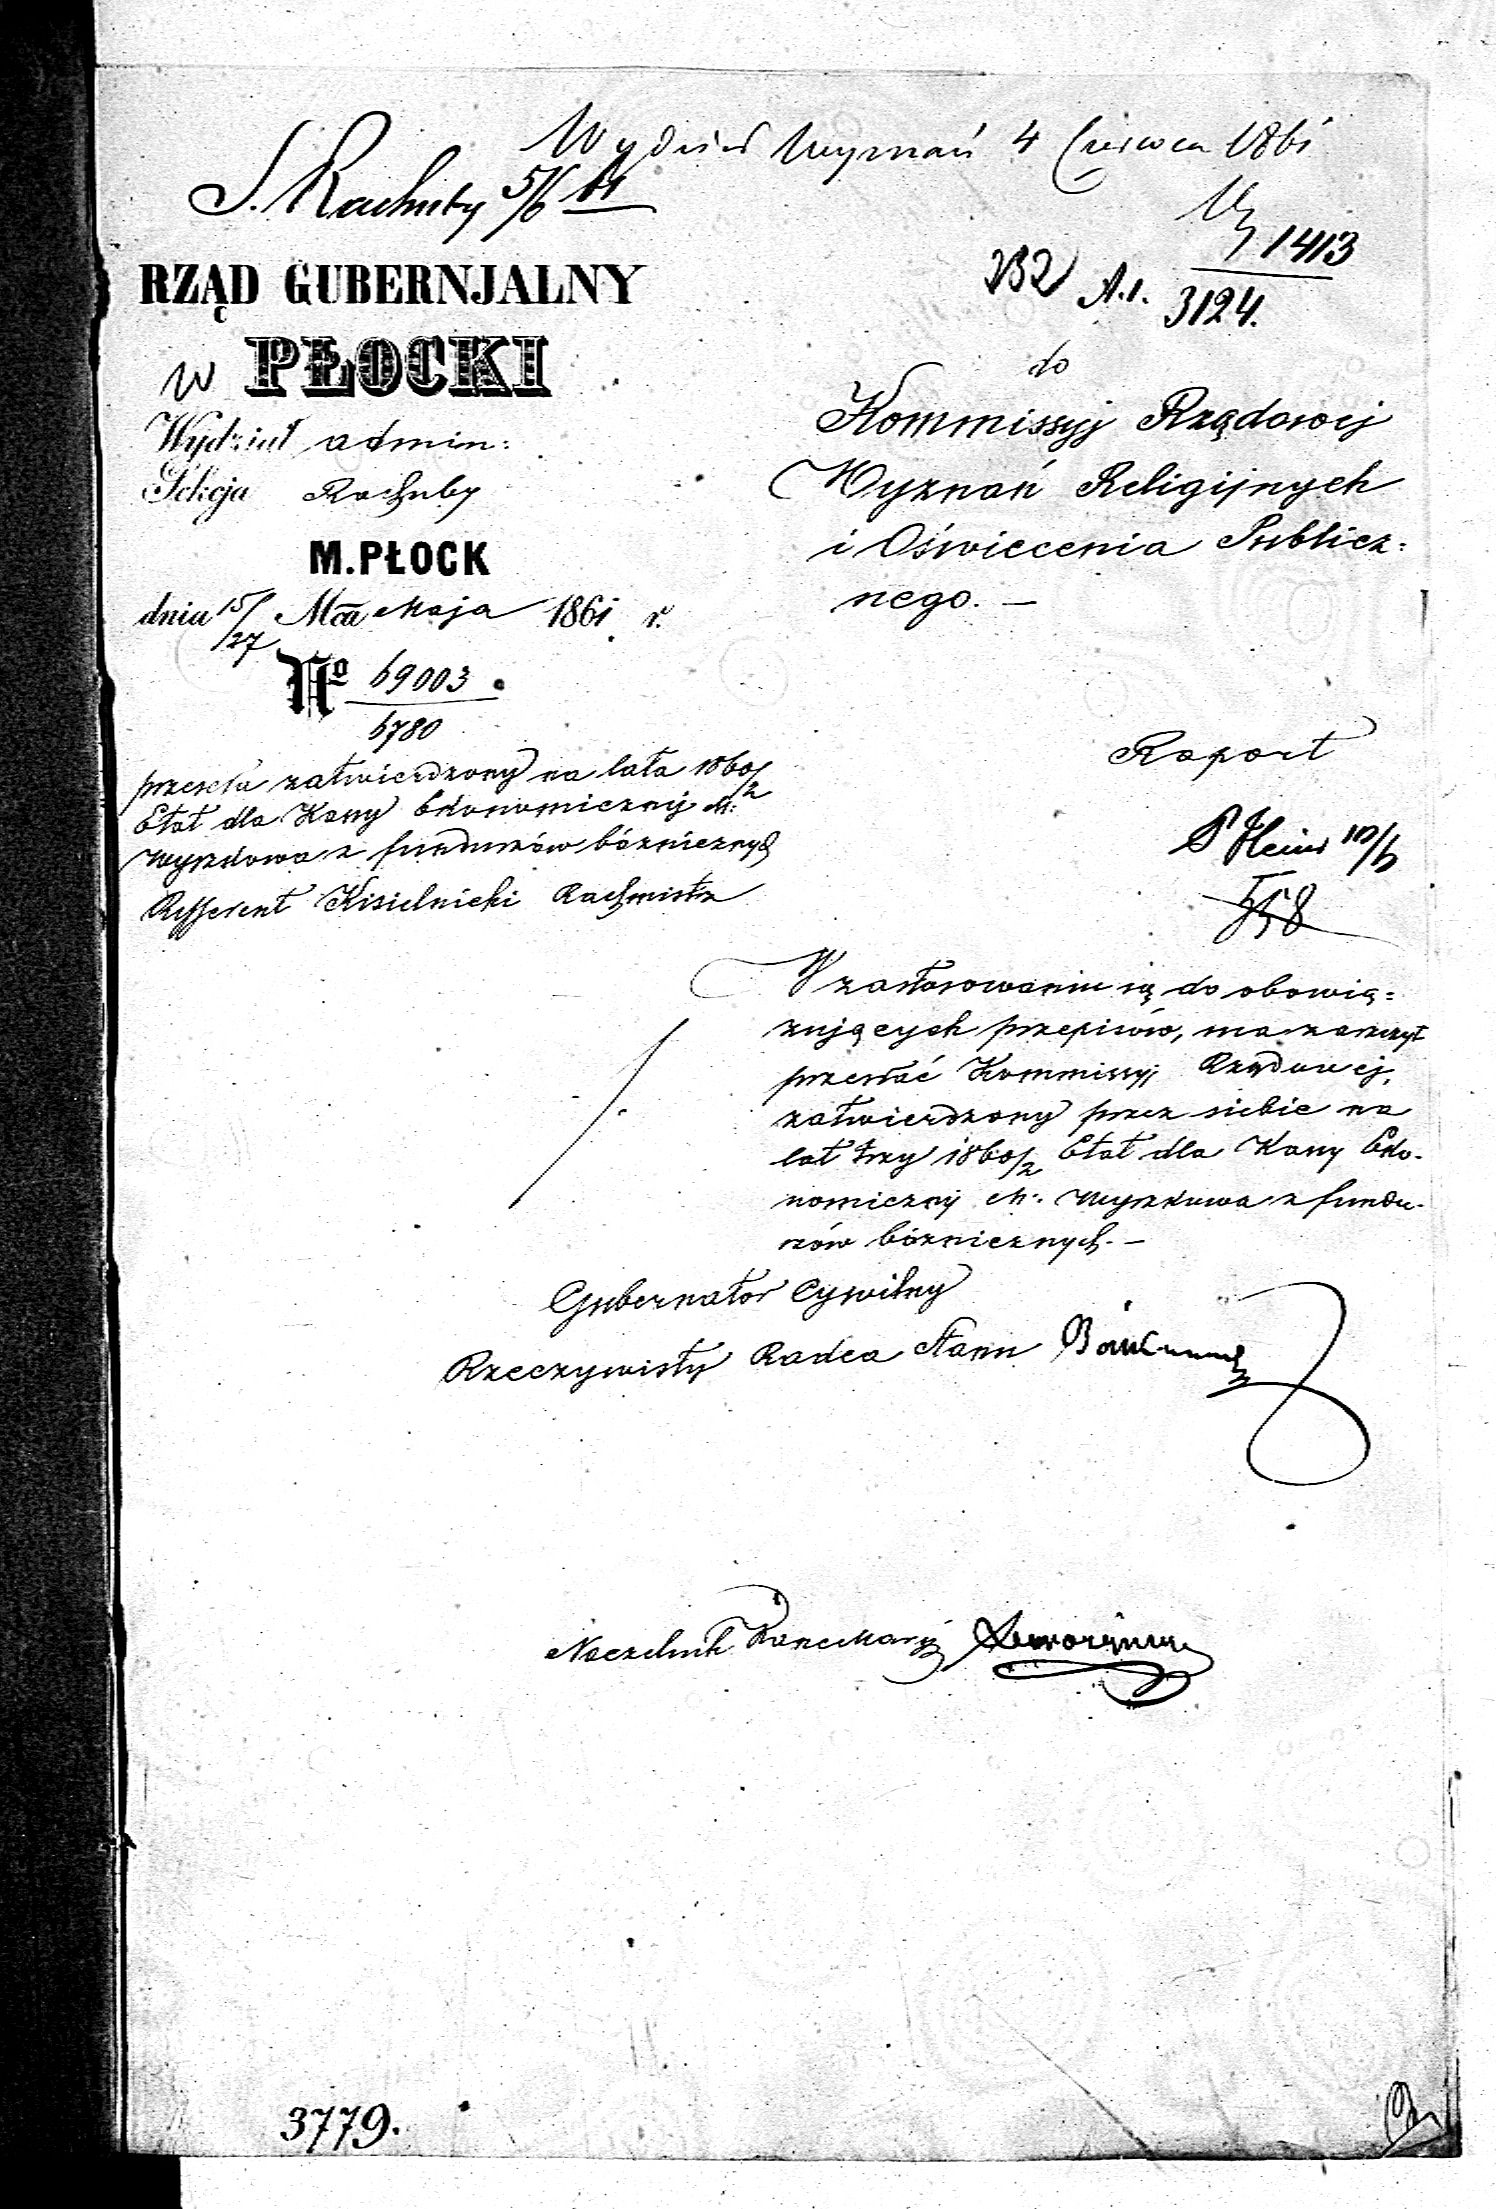 Wydział Wyznań 4 Czerwca 1861
S. Rachuby 5/6 61
W 1413
232 A.1. 3124.
RZĄD GUBERNJALNY
w PŁOCKI
Wydział admin:
Sekcja Rachuby
M. PŁOCK
dnia 15/27 Mca Maja 1861 r.
No 69003
6780
przesyła zatwierdzony na lata 1860/2
Etat dla Kassy Ekonomicznéj M:
Wyszkowa z funduszów bóżnicznych
Refferent Kisielnicki Rachmistrz
do
Kommissyj Rządowej
Wyznań Religijnych
i Oświecenia Publicz=
nego. —
Raport
P 10/6
558
W zastosowaniu się do obowią=
zujących przepisów, ma zaszczyt
przesłać Kommissyj Rządowej,
zatwierdzony przez siebie na
lat trzy 1860/2 Etat dla Kassy Eko-
nomicznéj M: Wyszkowa z fundu-
szów bóżnicznych. —
Gubernator Cywilny
Rzeczywisty Radca Stanu
Naczelnik Kancellaryi
3779.